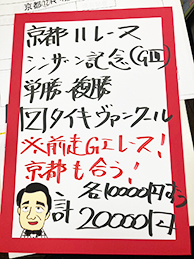 京都11レース
シンザン記念(GⅢ)
単勝・複勝
12タイキヴァンクール
※前走GⅠレース!
京都も合う!
各10000円ずつ
計20000円